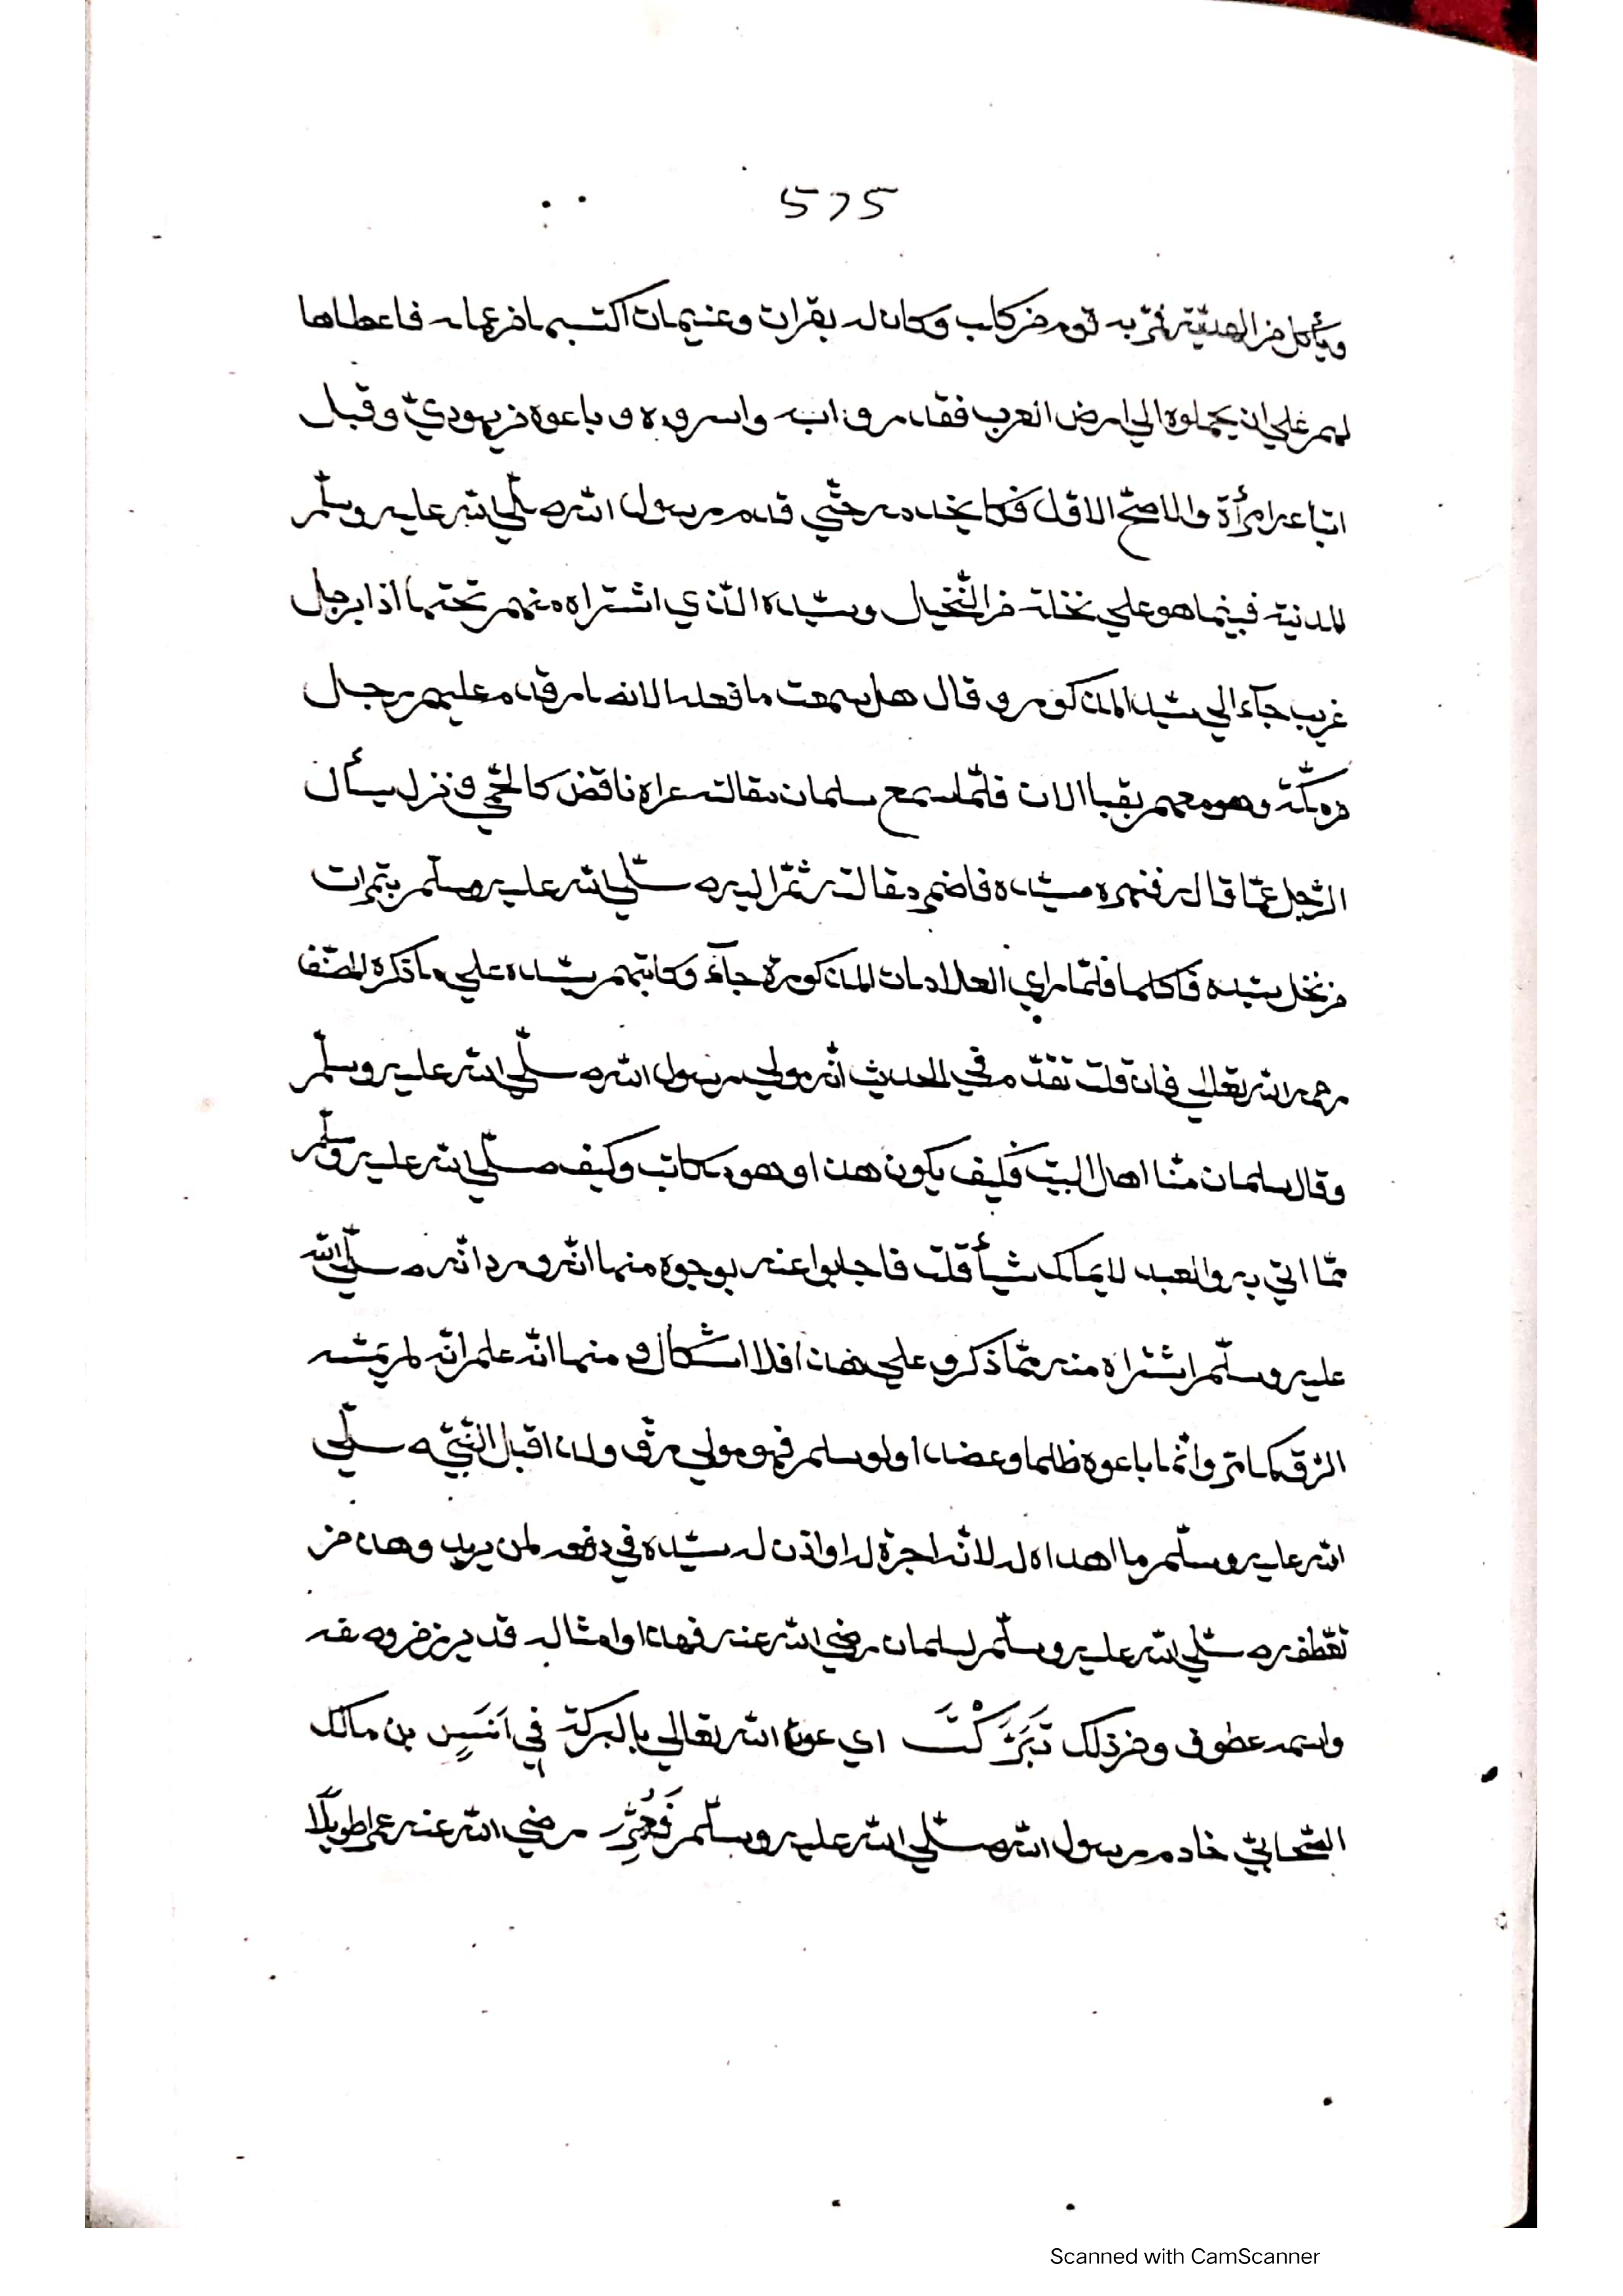 575
ويأكل من الهديّة فمرّ به قوم من كلب وكان له بقرات وغنيمات اكتسبها من عمله فاعطاها
لهم علي ان يحملوه الي ارض العرب فغدروا به واسروه وباعوه من يهوديّ وقيل
ابتاعه امرأة والاصحّ الاوّل فكان يخدمه حتّي قدم رسول الله صلّي الله عليه وسلّم
المدنية فبينما هو علي نخلة من النّخيل وسيّده الّذي اشتراه منهم تحتها اذا برجل
غريب جآء الي سيّده المذكور وقال هل سمعت ما فعله الانصار قدم عليهم رجل
من مكّة وهو معهم بقبا الان فلمّا سمع سلمان مقالته عراه نافض كالحمّي ونزل يسأل
الرّجل عمّا قال فنهره سيّده فاضمر مقالته ثمّ اليه صلّي الله عليه وسلّم بتمرات
من نخل سيّده فاكلها فلمّا راي العلامات المذكورة جآء وكاتبهم سيّده علي ما ذكره المصنّف
رحمه الله تعالي فان قلت تقدّم في الحديث انّه مولي رسول الله صلّي الله عليه وسلّم
وقال سلمان منّا اهل البيت فكيف يكون هذا وهو مكاتب وكيف صلّي الله عليه وسلّم
ممّا اتي به والعبد لا يملك شيأ قلت فاجابوا عنه بوجوه منها انّه ورد انّه صلّي الله
عليه وسلّم اشتراه منه ممّا ذكر وعلي هذا فلا اشكال ومنها انّه علم انّه لم يمسّه
الرّق كما مرّ وانّما باعوه ظلما وغصبا ولو سلم فهو مولي رق ولذا قبل النّبيّ صلّي
الله عليه وسلّم ما اهداه له لانّه اجرة له او اذن له سيّده في دفعه لمن يريد وهذا من
تعطفه صلّي الله عليه وسلّم لسلمان رضي الله عنه فهذا وامثاله قد برز من وصفه
واسمه عطوف ومن ذلك تَبَرَّكْتَ اي دعوت الله تعالي بالبركة في اَنَسٍ بن مالك
الصّحابيّ خادم رسول الله صلّي الله عليه وسلّم فَعُمِّرَ رضي الله عنه عمرا طويلًا
Scanned with CamScanner